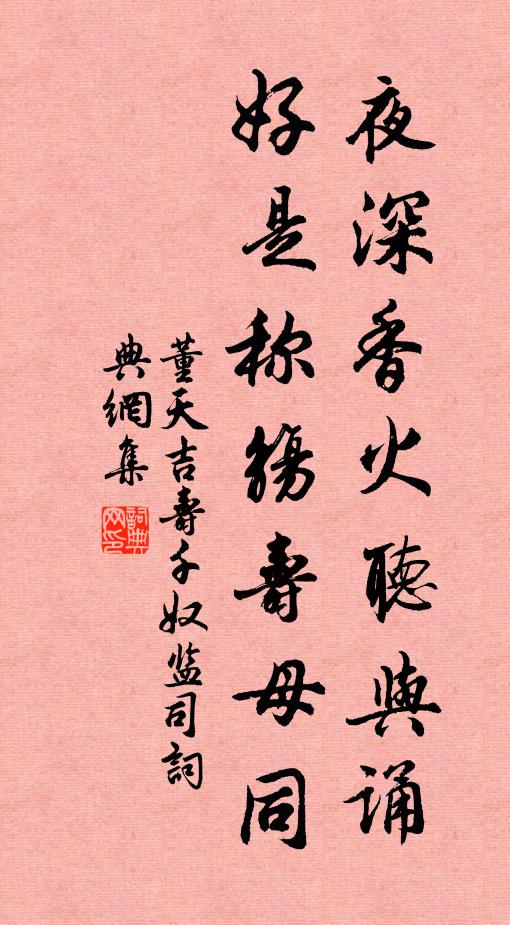 夜深香火聽與誦
好是称觴壽母同
董天吉壽千奴监司詞
典網集
詞典網印